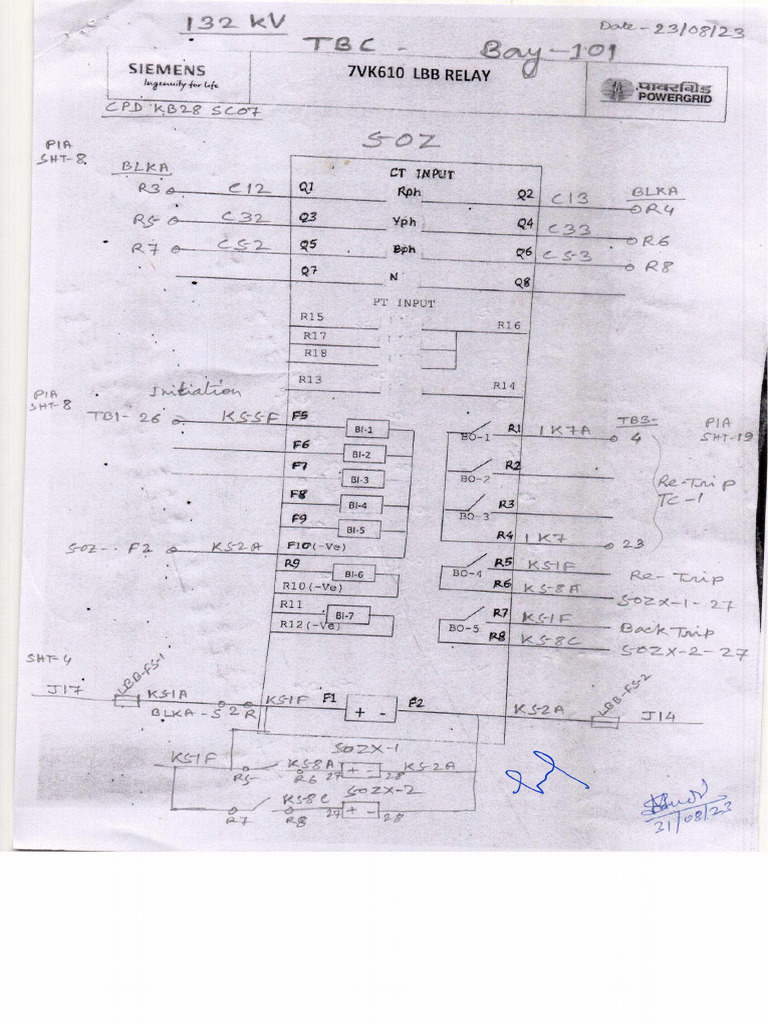 132 KV
Date - 23/08/23
TBC - Bay-101
SIEMENS
Ingenuity for life
7VK610 LBB RELAY
पावरग्रिड
POWERGRID
CPD KB28 SC07
50Z
PIA
SHT-8
BLKA
CT INPUT
BLKA
R3 C12 Q1 Rph Q2 C13 R4
R5 C32 Q3 Yph Q4 C33 R6
R7 C52 Q5 Bph Q6 C53 R8
Q7 N Q8
PT INPUT
R15 R16
R17
R18
R13 R14
PIA
SHT-8
Initiation
TB1-26 K55F F5 BI-1
F6 BI-2
F7 BI-3
F8 BI-4
F9 BI-5
50Z-- F2 K52A F10(-Ve)
R9 BI-6
R10(-Ve)
R11 BI-7
R12(-Ve)
TB3-
PIA
SHT-19
BO-1 R1 1K7A 4
BO-2 R2
Re-Trip
TC-1
BO-3 R3
R4 1K7 23
BO-4 R5 K51F Re-Trip
R6 K58A 50ZX-1-27
BO-5 R7 K51F Back Trip
R8 K58C 50ZX-2-27
SHT-4
J17 LBB-FS-1 K51A BLKA-S 2 R K51F F1 + - F2 K52A LBB-FS-2 J14
50ZX-1
K51F R5 K58A R6 27 + - 28 K52A
50ZX-2
R7 K58C R8 27 + - 28
21/08/23